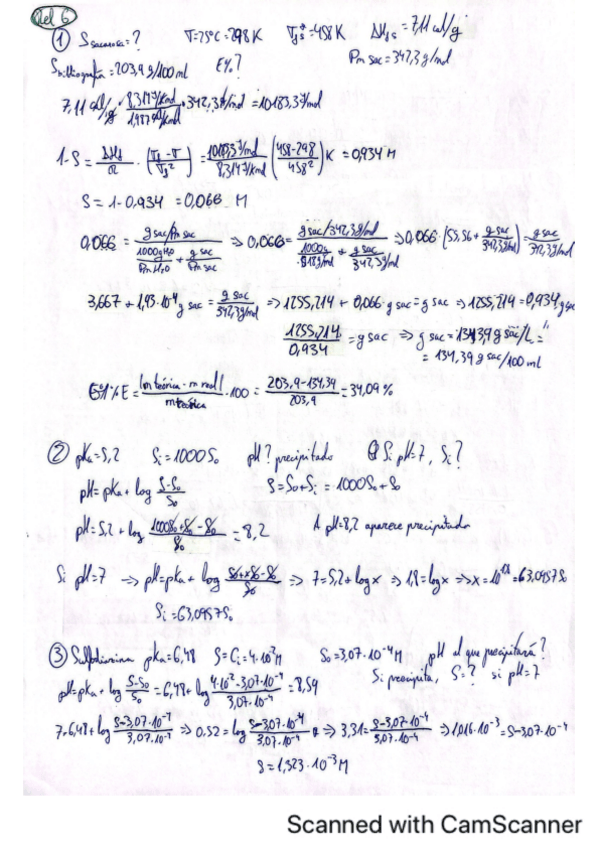 Rel 6
① S sacarosa=? T=25°C=298K T_f*=458K ΔH_f s=7,11 cal/g
S bibliografía=203,9 g/100ml E%? Pm sac=342,3 g/mol
7,11 cal/g · (8,314 J/K mol)/(1,987 cal/K mol) · 342,3 g/mol = 10183,3 J/mol
1-S = ΔH_f/R · (T_f-T/T_f²) = (10183,3 J/mol)/(8,314 J/K mol) (458-298/458²) K = 0,934 M
S = 1-0,934 = 0,066 M
0,066 = (g sac/Pm sac)/(1000g H₂O/Pm H₂O + g sac/Pm sac) ⇒ 0,066 = (g sac/342,3g/mol)/(1000g/18g/mol + g sac/342,3g/mol) ⇒ 0,066·(55,56 + g sac/342,3g/mol) = g sac/342,3g/mol
3,667 + 1,93·10⁻⁴ g sac = g sac/342,3g/mol ⇒ 1255,214 + 0,066·g sac = g sac ⇒ 1255,214 = 0,934 g sac
1255,214/0,934 = g sac ⇒ g sac = 1343,9 g sac/L =
= 134,39 g sac/100 ml
%E = |m teórica - m real|/m teórica · 100 = 203,9-134,39/203,9 = 34,09 %
② pKa=5,2 Si=1000S₀ pH? precipitado Si pH=7, Si?
pH = pKa + log S-S₀/S₀ S=S₀+Si=1000S₀+S₀
pH = 5,2 + log 1000S₀+S₀-S₀/S₀ = 8,2 A pH=8,2 aparece precipitado
Si pH=7 → pH=pKa+log S₀+xS₀-S₀/S₀ ⇒ 7=5,2+log x ⇒ 1,8=log x ⇒ x=10^1,8=63,0957S₀
Si=63,0957S₀
③ pKa=6,48 S=Ci=4·10⁻²M S₀=3,07·10⁻⁴M pH al que precipitará?
Si precipita, S=? si pH=7
pH=pKa+log S-S₀/S₀ = 6,48+log 4·10⁻²-3,07·10⁻⁴/3,07·10⁻⁴ = 8,59
7=6,48+log S-3,07·10⁻⁴/3,07·10⁻⁴ ⇒ 0,52=log S-3,07·10⁻⁴/3,07·10⁻⁴ ⇒ 3,31=S-3,07·10⁻⁴/3,07·10⁻⁴ ⇒ 1,016·10⁻³=S-3,07·10⁻⁴
S=1,323·10⁻³M
Scanned with CamScanner